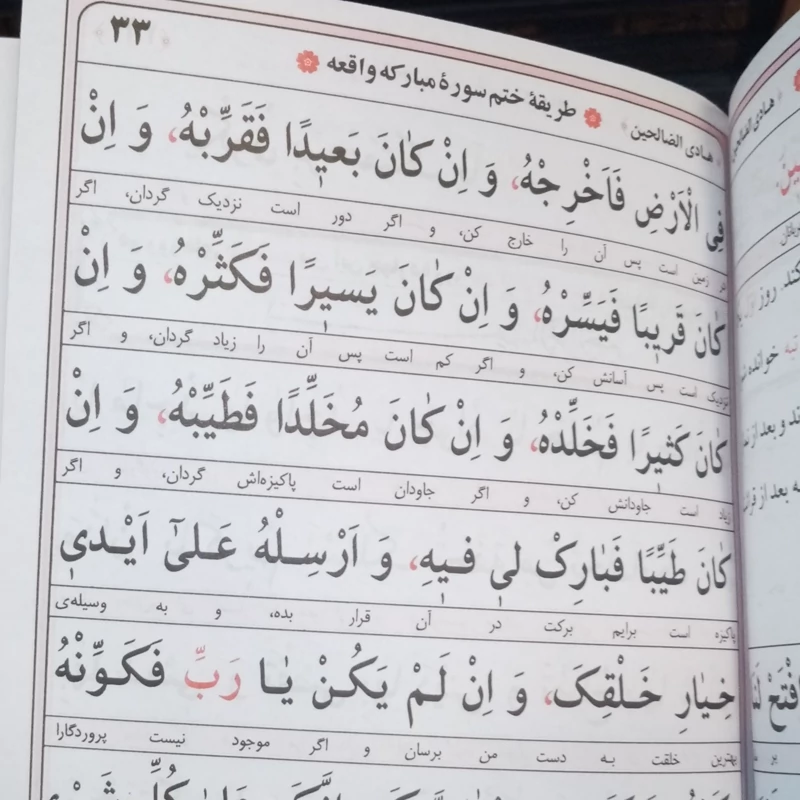 هادی الصالحین طریقهٔ ختم سورهٔ مبارکه واقعه ۳۳
فِی الْاَرْضِ فَاَخْرِجْهُ، وَ اِنْ کٰانَ بَعیٖدًا فَقَرِّبْهُ، وَ اِنْ
در زمین است پس آن را خارج کن، و اگر دور است نزدیک گردان، اگر
کٰانَ قَریٖبًا فَیَسِّرْهُ، وَ اِنْ کٰانَ یَسیٖرًا فَکَثِّرْهُ، وَ اِنْ
نزدیک است پس آسانش کن، و اگر کم است پس آن را زیاد گردان، و اگر
کٰانَ کَثیٖرًا فَخَلِّدْهُ، وَ اِنْ کٰانَ مُخَلَّدًا فَطَیِّبْهُ، وَ اِنْ
زیاد است جاودانش کن، و اگر جاودان است پاکیزه‌اش گردان، و اگر
کٰانَ طَیِّبًا فَبٰارِکْ لیٖ فیٖهِ، وَ اَرْسِلْهُ عَلیٰٓ اَیْدیٖ
پاکیزه است برایم برکت در آن قرار بده، و به وسیله‌ی
خِیٰارِ خَلْقِکَ، وَ اِنْ لَمْ یَکُنْ یٰا رَبِّ فَکَوِّنْهُ
بهترین خلقت به دست من برسان و اگر موجود نیست پروردگارا